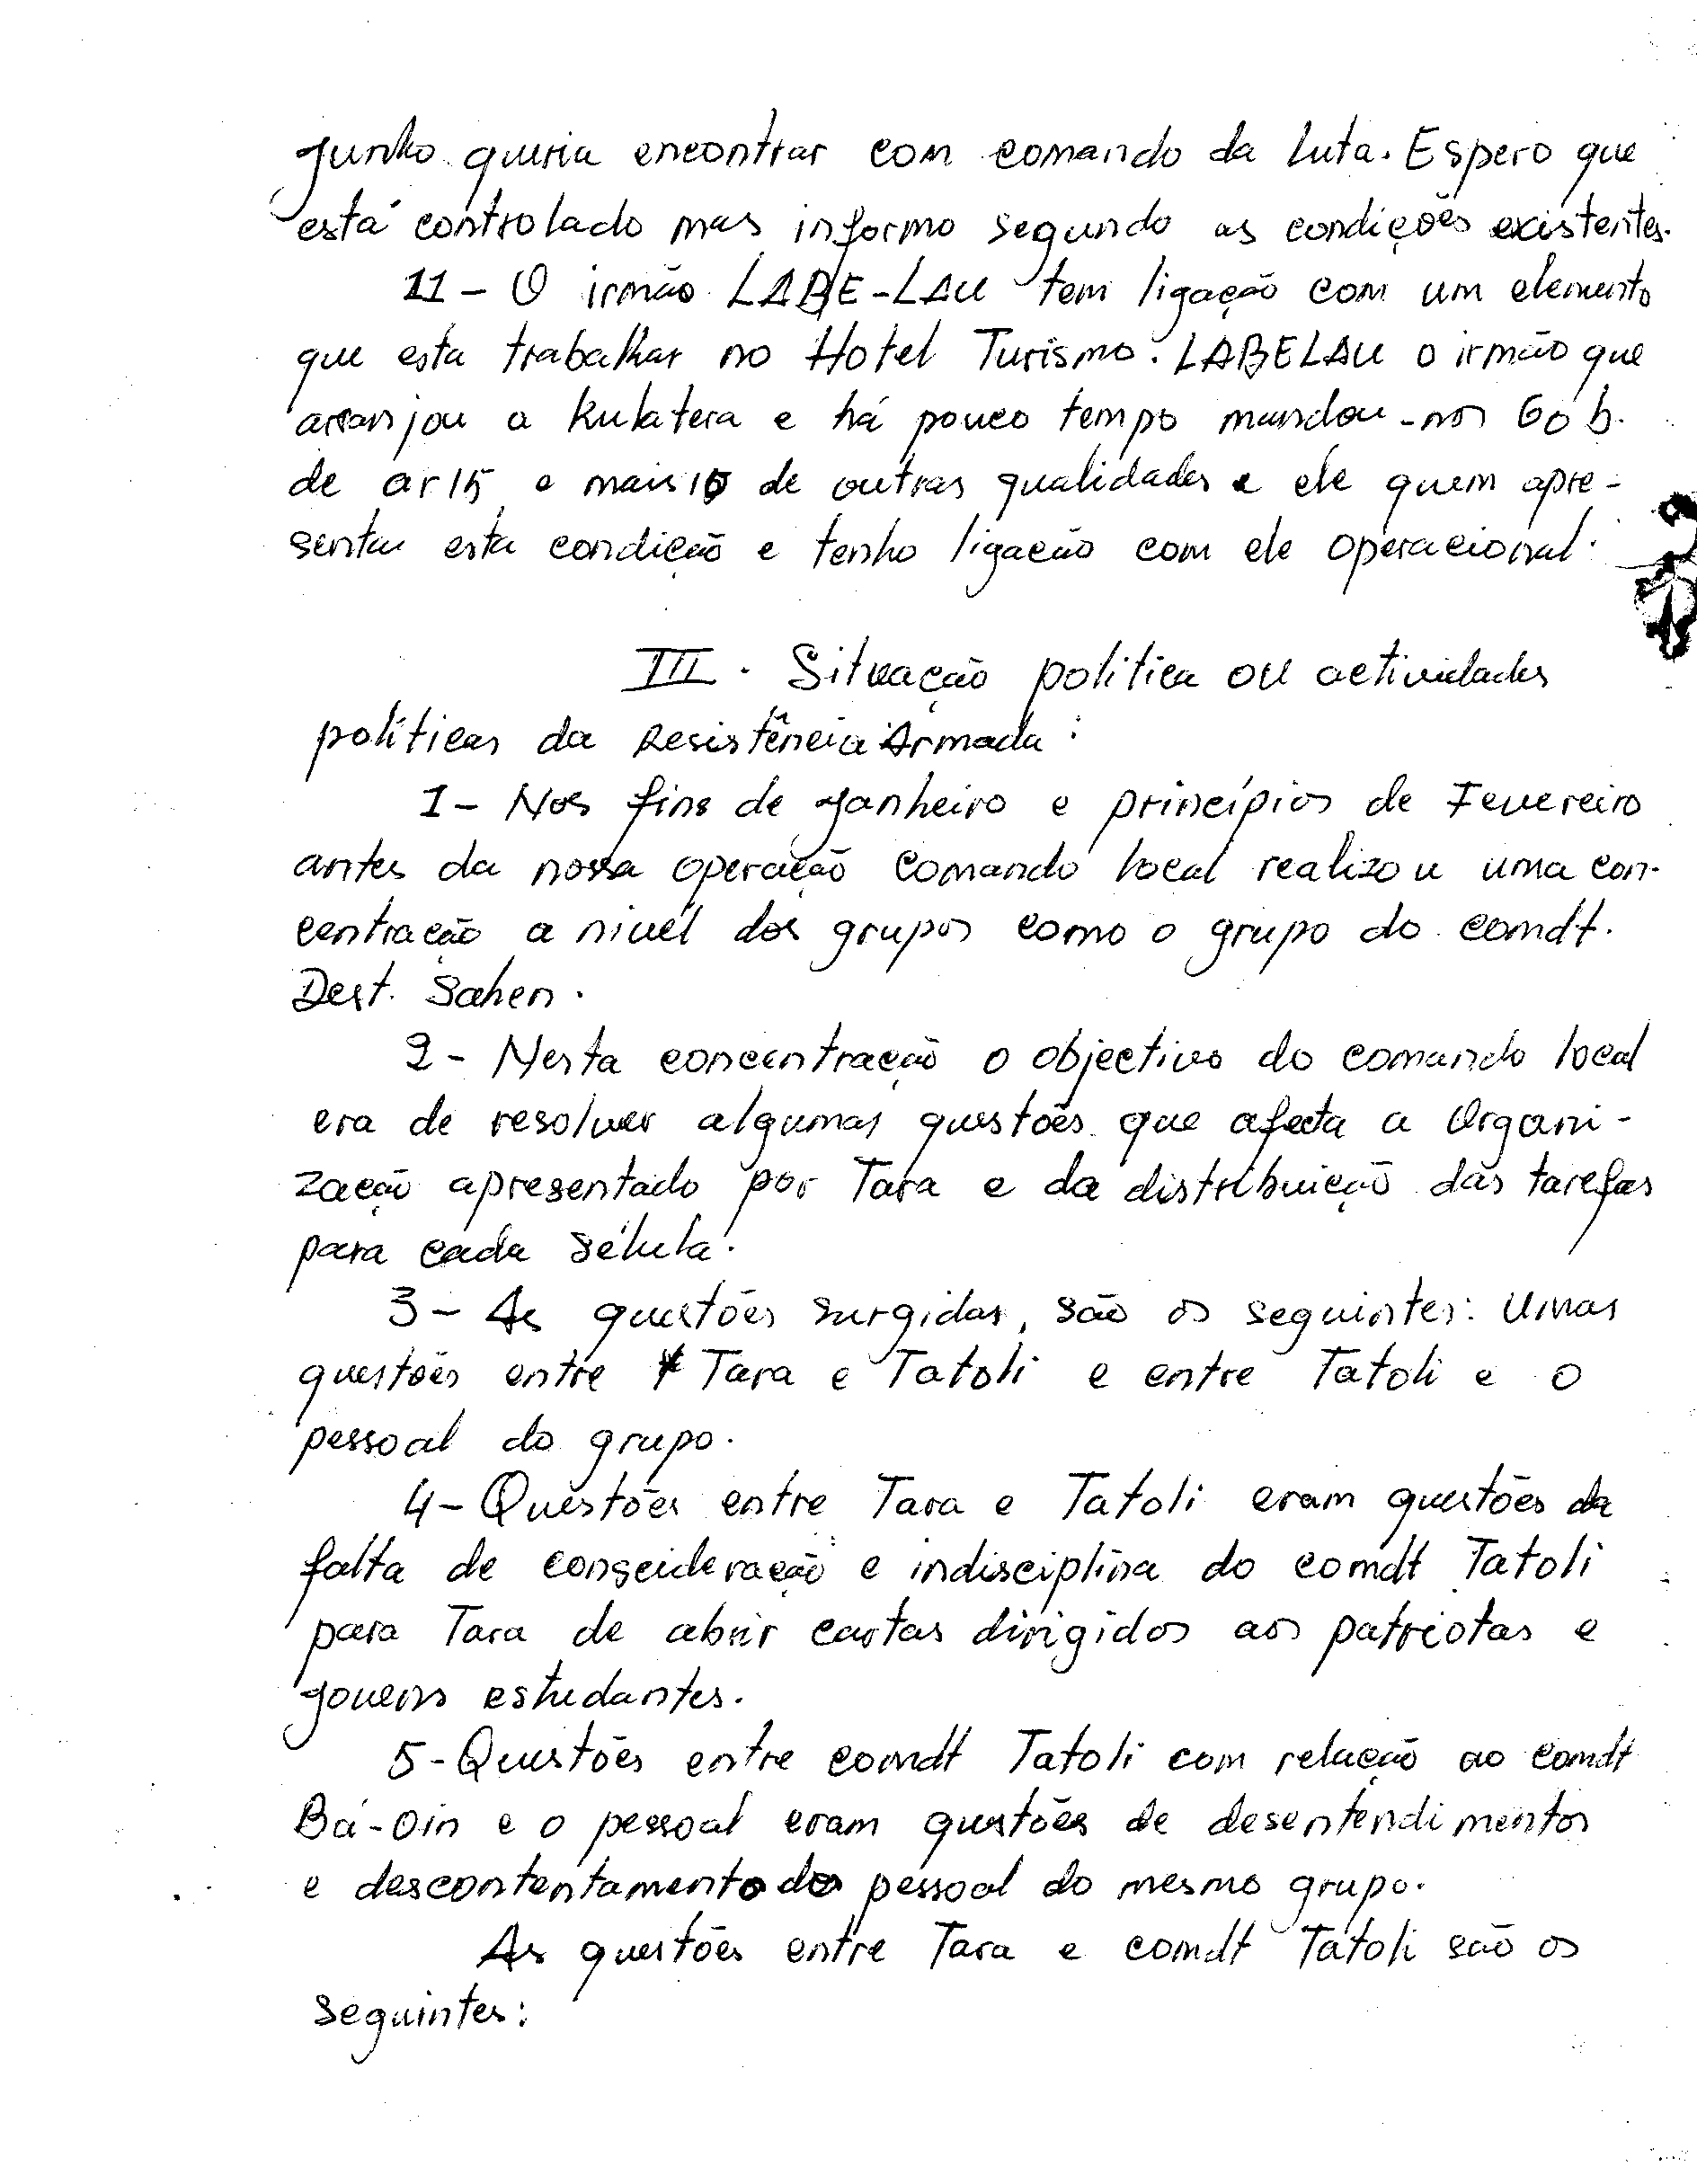 Junho queria encontrar com comando da luta. Espero que
está controlado mas informo segundo as condições existentes.
11 - O irmão LABE-LAU tem ligação com um elemento
que esta trabalhar no Hotel Turismo. LABELAU o irmão que
arranjou a kulatera e há pouco tempo mandou-nos 60 b.
de ar15 e mais 10 de outras qualidades e ele quem apre-
sentou esta condição e tenho ligação com ele operacional.
III. Situação politica ou actividades
políticas da Resistência Armada:
1 - Nos fins de Janheiro e princípios de Fevereiro
antes da nossa operação comando local realizou uma con-
centração a nivel dos grupos como o grupo do comdt.
Dest. Sahen.
2 - Nesta concentração o objectivo do comando local
era de resolver algumas questões que afecta a Organi-
zação apresentado por Tara e da distribuição das tarefas
para cada sélula.
3 - As questões surgidas, são os seguintes: Umas
questões entre Tara e Tatoli e entre Tatoli e o
pessoal do grupo.
4 - Questões entre Tara e Tatoli eram questões da
falta de conscideração e indisciplina do comdt Tatoli
para Tara de abrir cartas dirigidos aos patriotas e
jovens estudantes.
5 - Questões entre comdt Tatoli com relação ao comdt
Bá-Oin e o pessoal eram questões de desentendimentos
e descontentamento do pessoal do mesmo grupo.
As questões entre Tara e comdt Tatoli são os
seguintes: